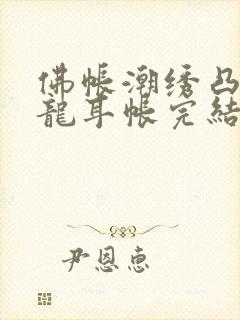 佛帳潮绣凸
龍耳帳完結
尹恩惠